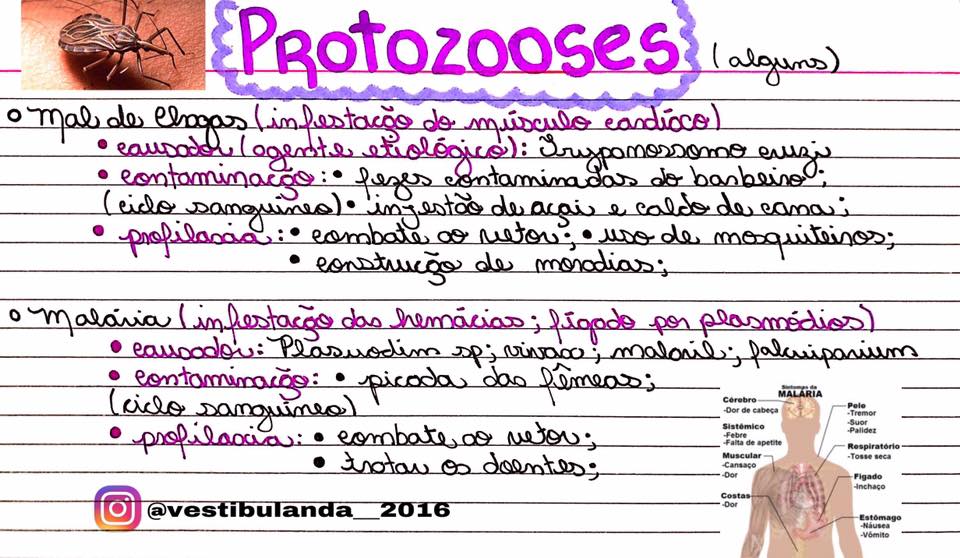 PROTOZOOSES (alguns)
Mal de Chagas (infestação do músculo cardíaco)
• causador (agente etiológico): Trypanossomo cruzi
• contaminação: • fezes contaminadas do barbeiro;
(ciclo sanguíneo) • ingestão de açai e caldo de cana;
• profilaxia: • combate ao vetor; • uso de mosquiteiros;
• construção de moradias;
Malária (infestação das hemácias; fígado por plasmódios)
• causador: Plasmodim sp; vivax; malarie; falciparium
• contaminação: • picada das fêmeas;
(ciclo sanguíneo)
• profilaxia: • combate ao vetor;
• tratar os doentes;
@vestibulanda__2016
Sintomas da
MALÁRIA
Cérebro
-Dor de cabeça
Sistêmico
-Febre
-Falta de apetite
Muscular
-Cansaço
-Dor
Costas
-Dor
Pele
-Tremor
-Suor
-Palidez
Respiratório
-Tosse seca
Fígado
-Inchaço
Estômago
-Náusea
-Vômito